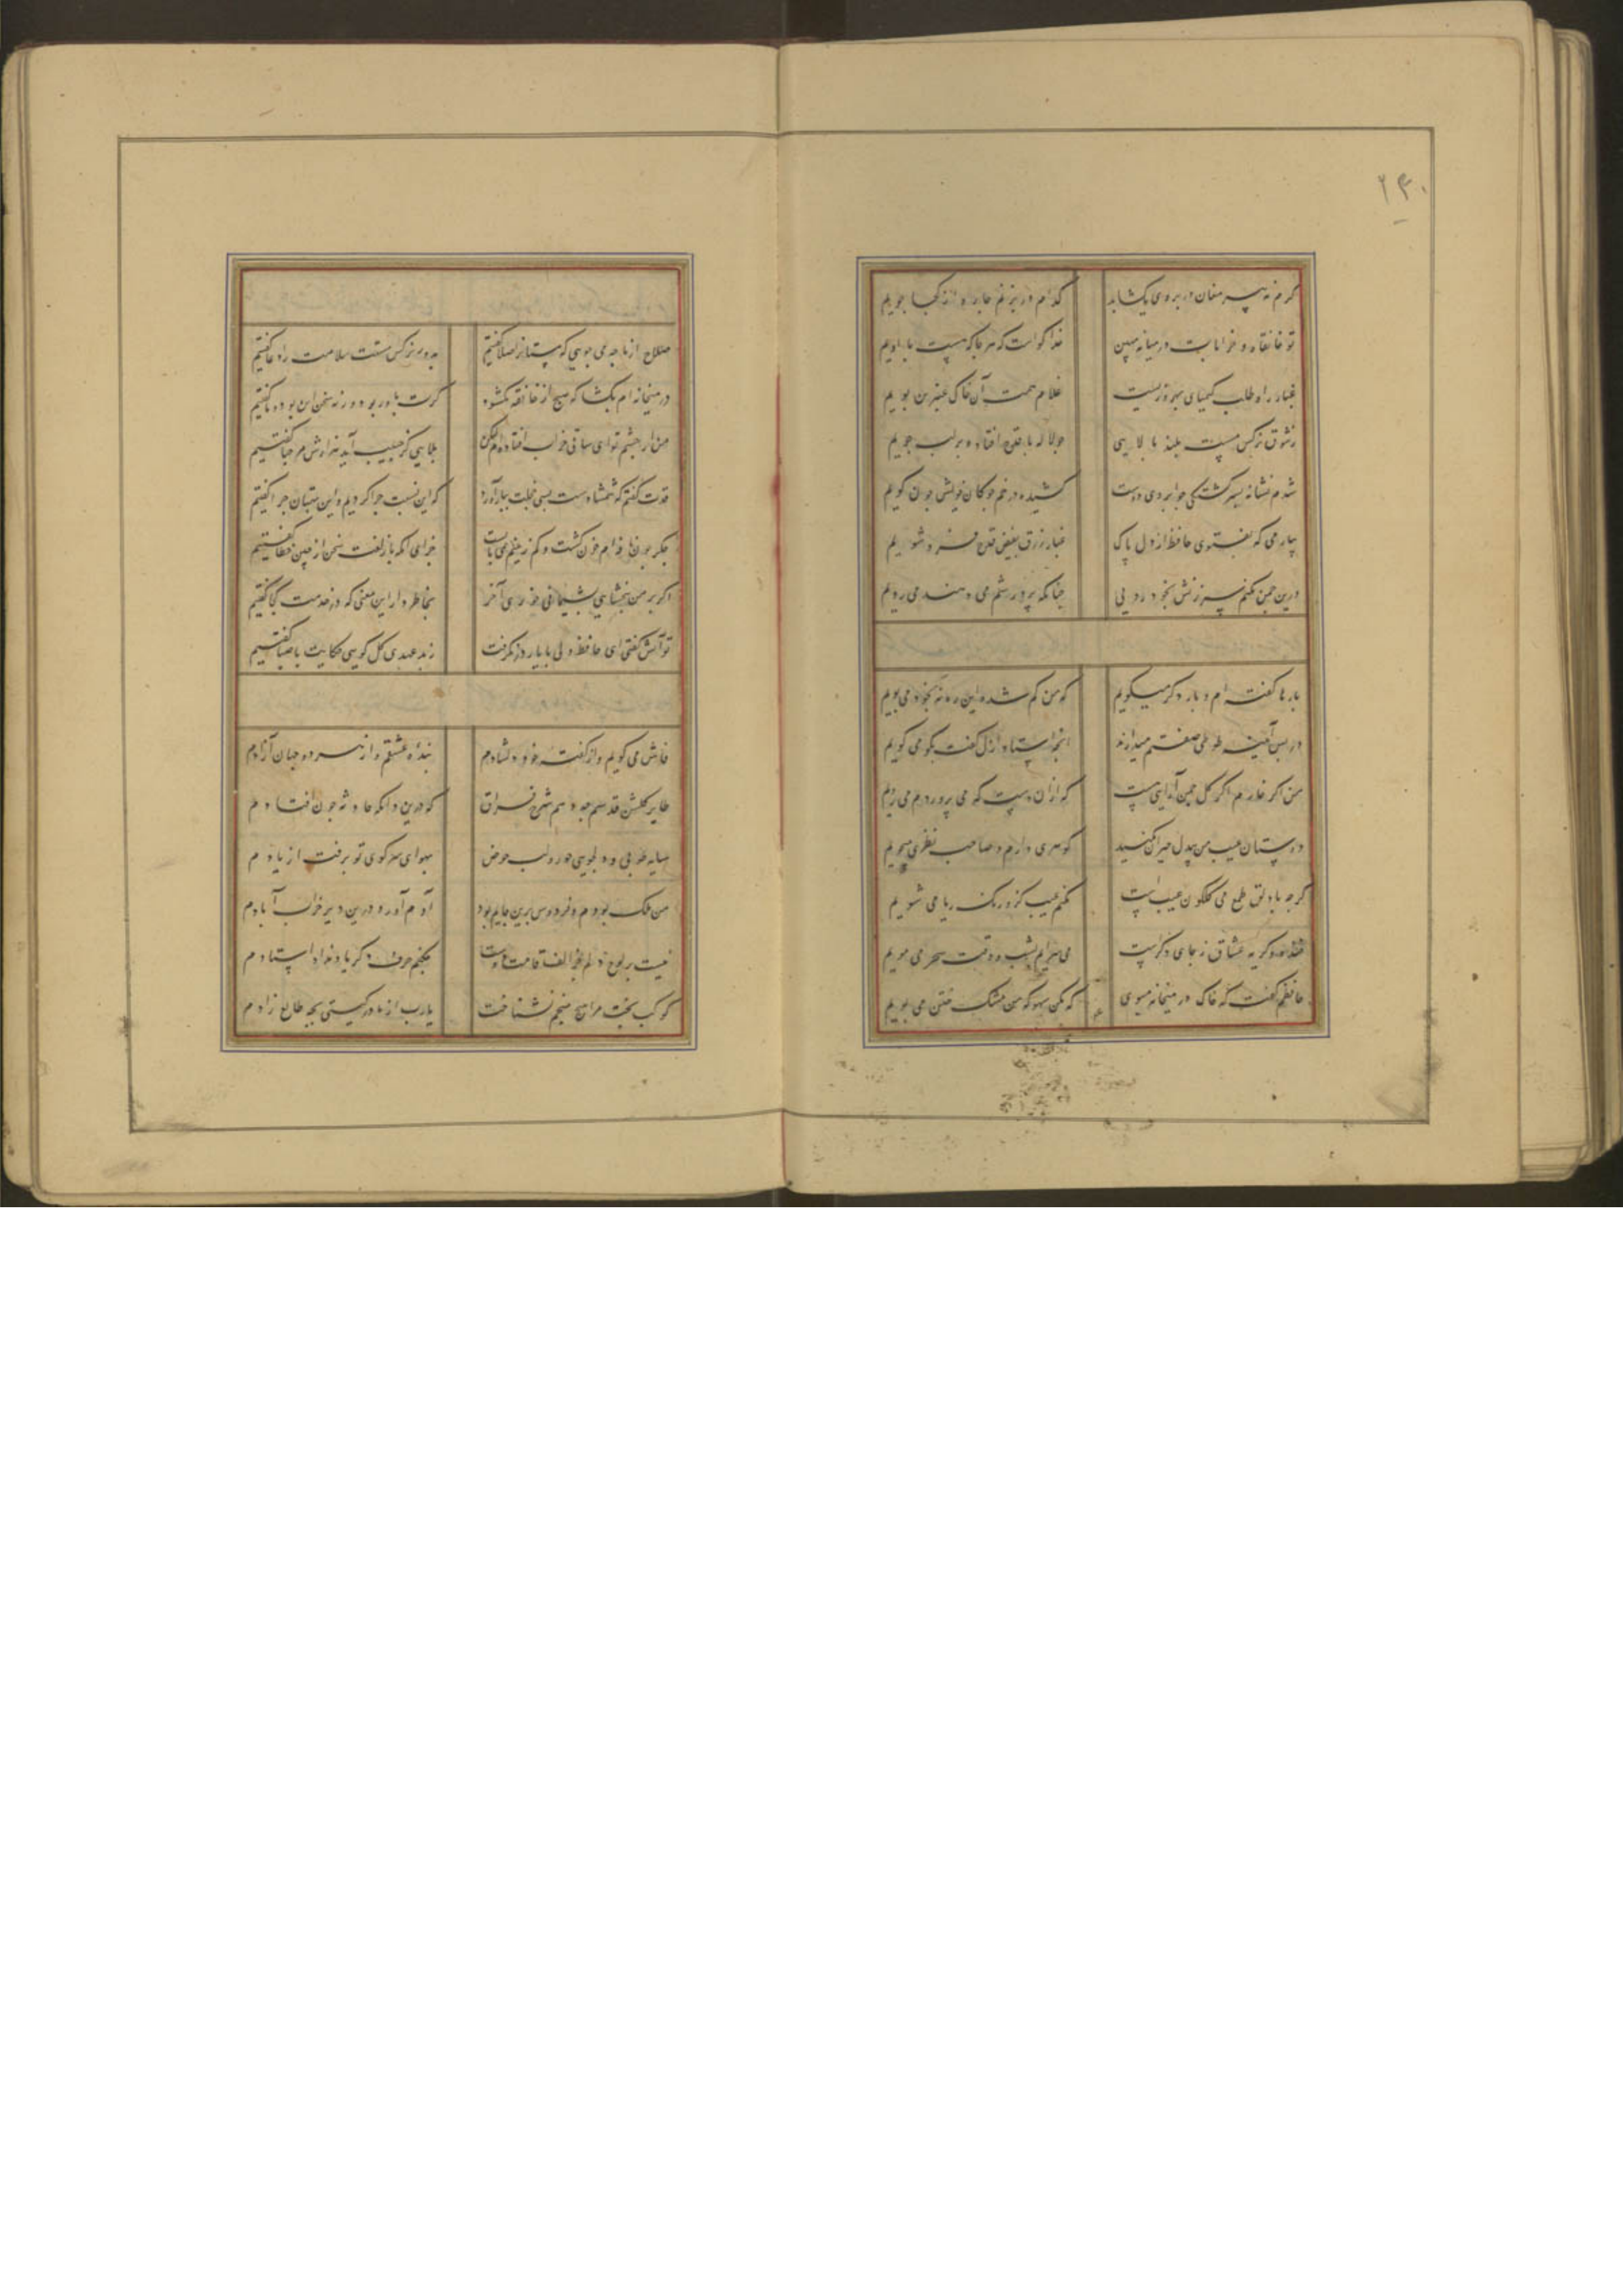 ۲۴۰
گرم نه پیر مغان در بروی بکشاید
کدام در بزنم چاره از کجا جویم
تو خانقاه و خرابات در میانه مبین
خدا گواست که هر جا که هست با اویم
غبار راه طلب کیمیای بهروزیست
غلام همت آن خاک عنبرین بویم
ز شوق نرکس مست بلند بالایی
جو لاله با قدح افتاده بر لب جویم
شدم نشانه بسرکشتکی جو ابروی دوست
کشیده در خم جوکان خویش جون کویم
بیار می که بفتوی حافظ از دل پاک
غبار زرق بفیض قدح فرو شویم
درین جمن نکنم سرزنش بخود رویی
جنانکه پرورشم می دهند می رویم
بارها کفته ام و بار دکر میکویم
که من کم شده این ره نه بخود می پویم
در پس آینه طوطی صفتم میدارند
انجه استاد ازل کفت بکو می کویم
من اکر خارم اکر کل جمن آرایی هست
که از ان دست که می پروردم می رویم
دوستان عیب من بیدل حیران مکنید
کوهری دارم و صاحب نظری میجویم
کرجه با دلق ملمع می کلکون عیب است
مکنم عیب کزو رنک ریا می شویم
خنده و کریه عشاق ز جای دکرست
می سرایم بشب و وقت سحر می مویم
حافظم کفت که خاک در میخانه مبوی
که مکن بهو که من مشک ختن می بویم
صلاح از ما جه می جویی که مستانرا صلا کفتیم
بدور نرکس مستت سلامت را دعا کفتیم
در میخانه ام بکشا که هیج از خانقه نکشود
کرت باور بود ورنه سخن این بود و ما کفتیم
من از جشم تو ای ساقی خراب افتاده ام لیکن
بلایی کز حبیب آید هزارش مرحبا کفتیم
قدت کفتم که شمشادست بسی خجلت ببار آورد
که این نسبت جرا کردیم و این بهتان جرا کفتیم
جکر جون نافه ام خون کشت و کم زینم می بایست
جزای انکه با زلفت سخن از چین خطا کفتیم
اکر بر من نبخشایی بشیمانی خوری آخر
بخاطر دار این معنی که در خدمت کجا کفتیم
تو آتش کفتی ای حافظ ولی با یار در نکرفت
ز بد عهدی کل کویی حکایت با صبا کفتیم
فاش می کویم و از کفته خود دلشادم
بنده عشقم و از هر دو جهان آزادم
طایر کلشن قدسم جه دهم شرح فراق
که درین دامکه حادثه جون افتادم
سایه طوبی و دلجویی حور و لب حوض
بهوای سر کوی تو برفت از یادم
من ملک بودم و فردوس برین جایم بود
آدم آورد درین دیر خراب آبادم
نیست بر لوح دلم جز الف قامت دوست
جکنم حرف دکر یاد نداد استادم
کوکب بخت مرا هیج منجم نشناخت
یارب از مادر کیتی بجه طالع زادم